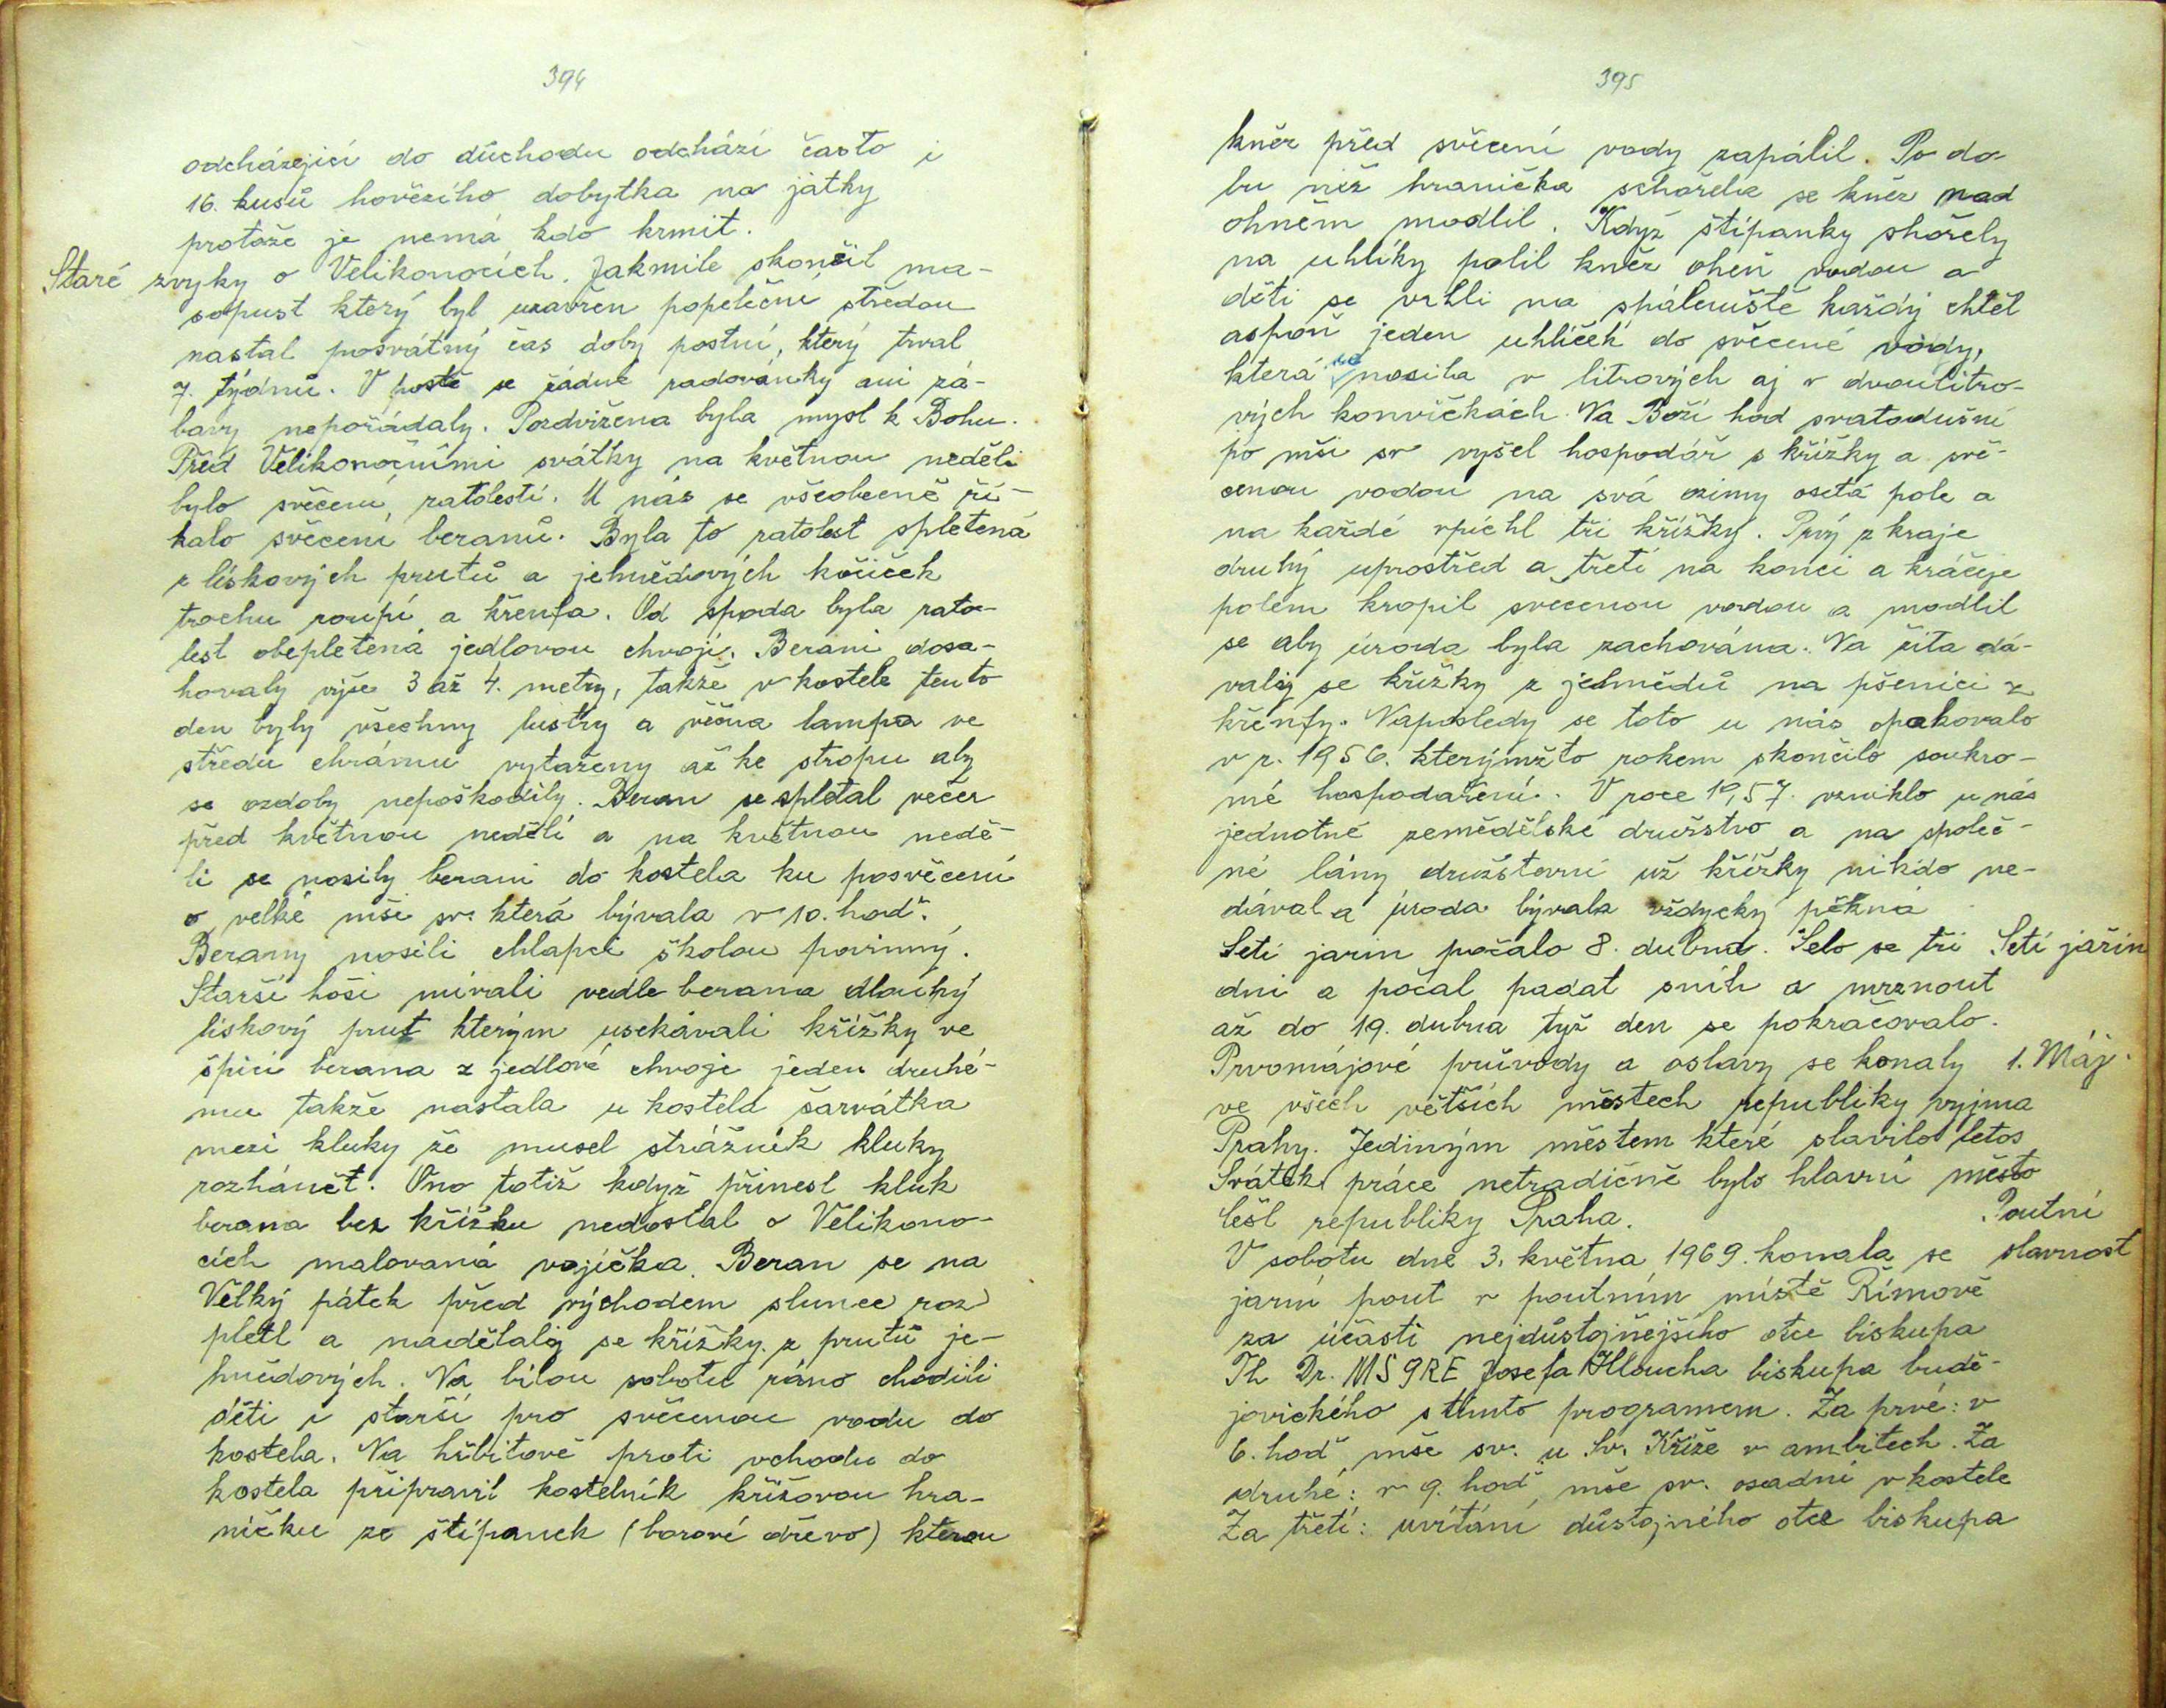 394
odcházející do důchodu odchází často i
16. kusů hovězího dobytka na jatky
protože je nemá kdo krmit.
Staré zvyky o Velikonocích. Jakmile skončil ma-
sopust který byl uzavřen popeleční středou
nastal posvátný čas doby postní, který trval
7. týdnů. V postě se žádné radovánky ani zá-
bavy nepořádaly. Pozdvižena byla mysl k Bohu.
Před Velikonočními svátky na květnou neděli
bylo svěcení ratolestí. U nás se všeobecně ří-
kalo svěcení beranů. Byla to ratolest spletená
z lískových prutů a jehnědových kočiček
trochu roupí a křenfa. Od spoda byla rato-
lest obepletená jedlovou chvojí. Berani dosa-
hovaly výše 3 až 4. metry, takže v kostele tento
den byly všechny lustry a věčná lampa ve
středu chrámu vytaženy až ke stropu aby
se ozdoby nepoškodily. Beran se splétal večer
před květnou nedělí a na květnou nedě-
li se nosily berani do kostela ku posvěcení
o velké mši sv. která bývala v 10. hod.
Berany nosili chlapci školou povinný.
Starší hoši mívali vedle berana dlouhý
lískový prut kterým usekávali křížky ve
špici berana z jedlové chvoje jeden druhé-
mu takže nastala u kostela šarvátka
mezi kluky že musel strážník kluky
rozhánět. Ono totiž když přinesl kluk
berana bez křížku nedostal o Velikono-
cích malovaná vajíčka. Beran se na
Velký pátek před východem slunce roz
pletl a nadělaly se křížky z prutů je-
hnědových. Na bílou sobotu ráno chodili
děti i starší pro svěcenou vodu do
kostela. Na hřbitově proti vchodu do
kostela připravil kostelník křížovou hra-
ničku ze štípanek (borové dřevo) kterou
395
kněz před svěcení vody zapálil. Po do
bu než hranička schořela se kněz nad
ohněm modlil. Když štípanky shořely
na uhlíky polil kněz oheň vodou a
děti se vrhli na spáleniště každý chtěl
aspoň jeden uhlíček do svěcené vody,
která se nosila v litrových aj v dvoulitro-
vých konvičkách. Na Boží hod svatodušní
po mši sv vyšel hospodář s křížky a svě-
cenou vodou na svá ozimy osetá pole a
na každé vpíchl tři křížky. Prvý z kraje
druhý uprostřed a třetí na konci a kráčeje
polem kropil svecenou vodou a modlil
se aby úroda byla zachována. Na žita dá-
valy se křížky z jehnědů na pšenici z
křenfy. Naposledy se toto u nás opakovalo
v r. 1956. kterýmžto rokem skončilo soukro-
mé hospodaření. V roce 1957. vzniklo u nás
jednotné zemědělské družstvo a na společ-
né lány družstevní už křížky nikdo ne-
dával a úroda bývala vždycky pěkná
Setí jarin počalo 8. dubna. Selo se tři Setí jařin
dni a počal padat sníh a mrznout
až do 19. dubna týž den se pokračovalo.
Prvomájové průvody a oslavy se konaly 1. Máj.
ve všech větších městech republiky vyjma
Prahy. Jediným městem které slavilo letos
Svátek práce netradičně bylo hlavní město
češl republiky Praha. Poutní
V sobotu dne 3. května 1969. konala se slavnost
jarní pout v poutním místě Římově
za účasti nejdůstojnějšího otce biskupa
Th Dr. MSGRE Josefa Hloucha biskupa budě-
jovického s tímto programem. Za prvé: v
6. hod mše sv. u Sv. Kříže v ambitech. Za
druhé: v 9. hod mše sv. osadní v kostele
Za třetí: uvítání důstojného otce biskupa